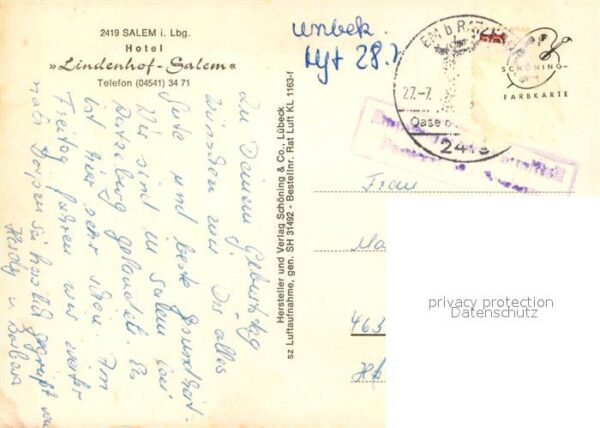 2419 SALEM i. Lbg.
Hotel
»Lindenhof-Salem«
Telefon (04541) 34 71
Zu Deinem Geburtstag
wünschen wir Dir alles
Gute und beste Gesundheit.
Wir sind in Salem bei
Ratzeburg gelandet. Es
ist hier sehr schön. Am
Freitag fahren wir weiter
nach
sei herzlich gegrüßt von
u. Barbara
Hersteller und Verlag Schöning & Co., Lübeck
sz Luftaufnahme, gen. SH 31492 - Bestellnr. Rat Luft KL 1163-f
unbek.
28.7
SALEM b RATZ
27.-7.
Oase
2419
SCHÖNING-
FARBKARTE
Frau
463
privacy protection
Datenschutz